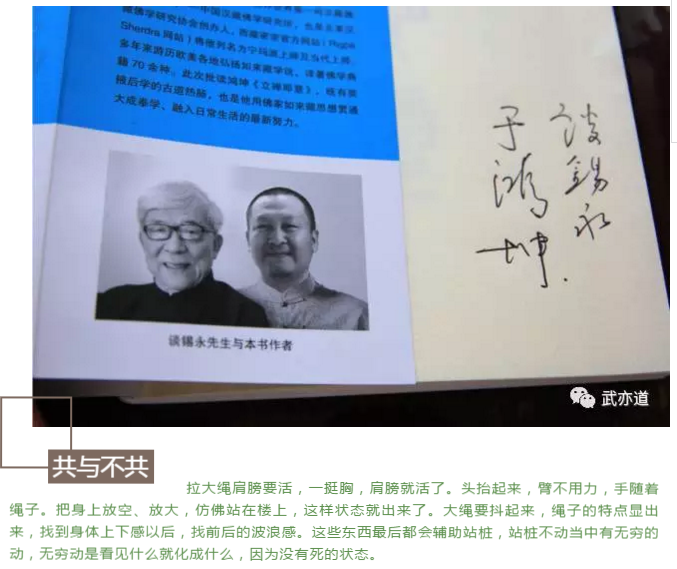 中国汉藏佛学研究所，也是北京汉
藏佛学研究协会创办人，西藏密宗官方网站（Rigpa
Sherdra 网站）将他列名为宁玛派上师及当代上师，
多年来游历欧美各地弘扬如来藏学说，译著佛学典
籍 70 余种。此次批读鸿坤《立禅即景》，既有奖
掖后学的古道热肠，也是他用佛家如来藏思想贯通
大成拳学、融入日常生活的最新努力。
谈锡永先生与本书作者
谈錫永
于鸿坤
武亦道
共与不共
拉大绳肩膀要活，一挺胸，肩膀就活了。头抬起来，臂不用力，手随着
绳子。把身上放空、放大，仿佛站在楼上，这样状态就出来了。大绳要抖起来，绳子的特点显出
来，找到身体上下感以后，找前后的波浪感。这些东西最后都会辅助站桩，站桩不动当中有无穷的
动，无穷动是看见什么就化成什么，因为没有死的状态。